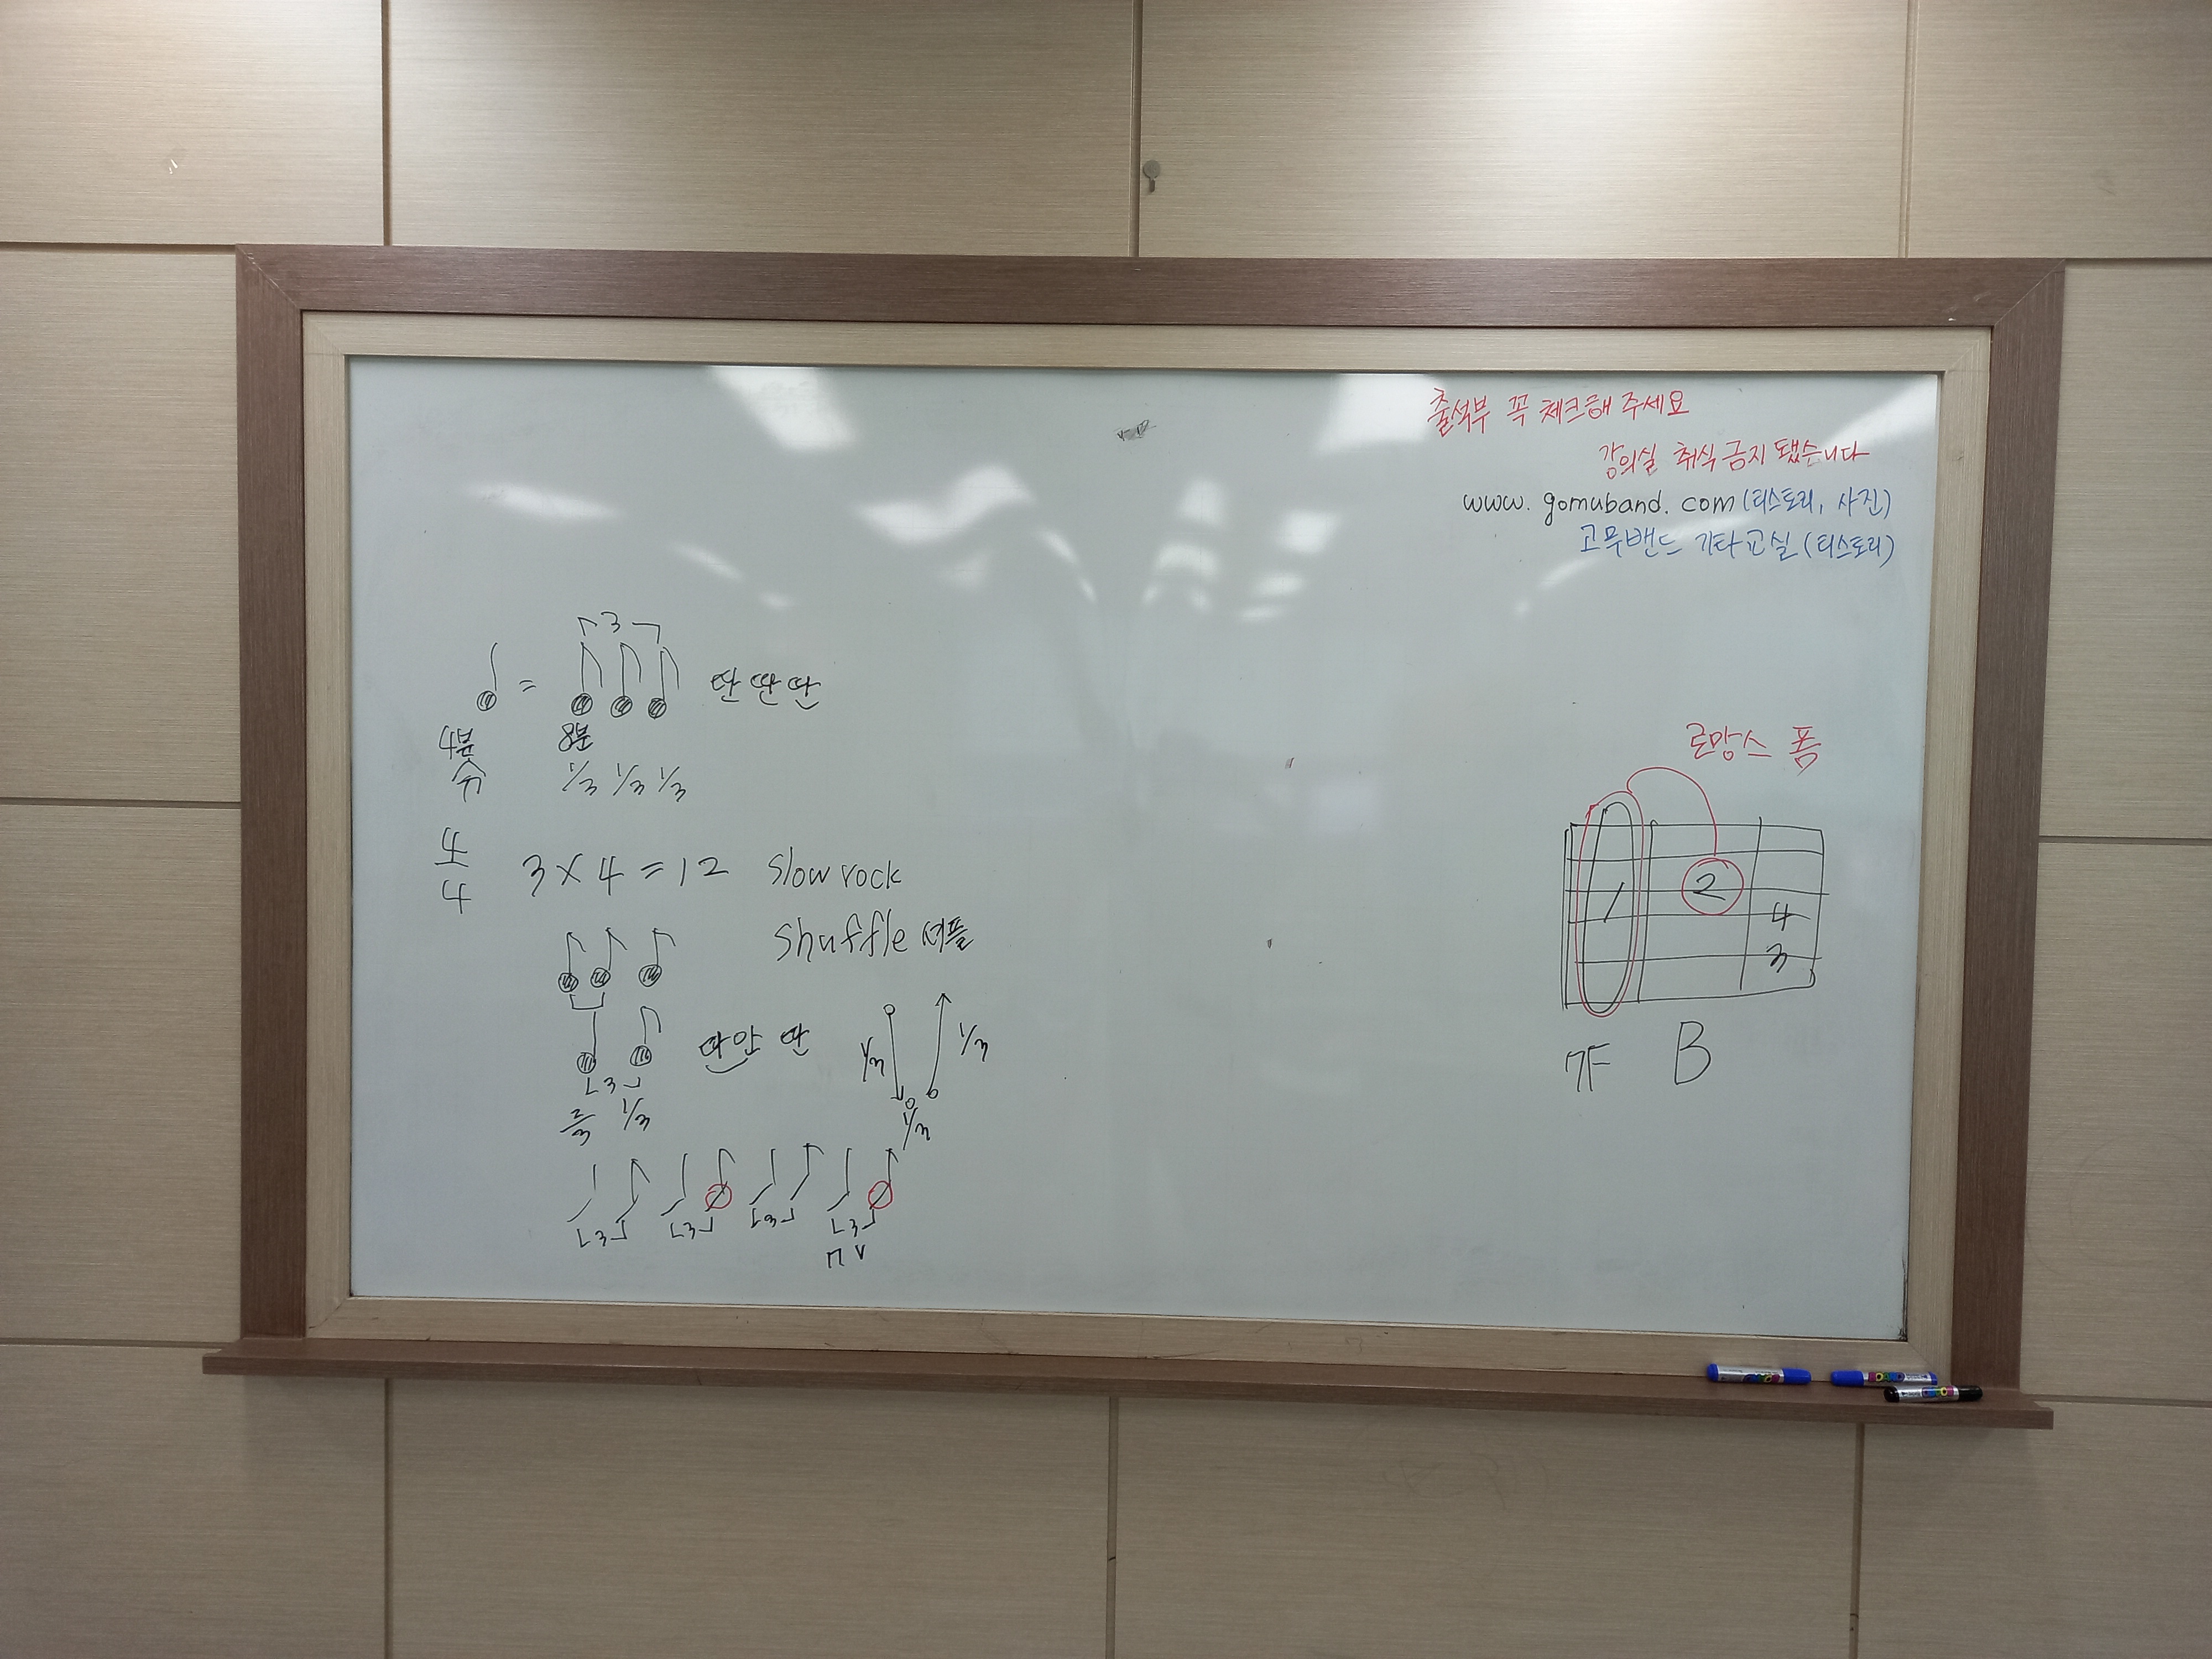 출석부 꼭 체크해 주세요
강의실 취식 금지 됐습니다
www. gomuband. com (티스토리, 사진)
고무밴드 기타교실 (티스토리)
3
= 딴 딴 딴
4분 8분
쉼 1/3 1/3 1/3
4/4 3 × 4 = 12 slow rock
shuffle 셔플
따안 딴
3
2/3 1/3
1/3 1/3 1/3
3 3 3 3
로망스 폼
1 2
4
3
7F B